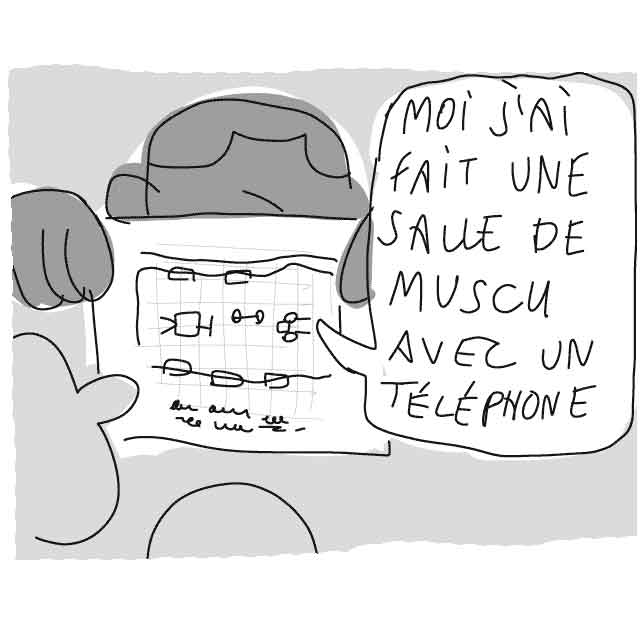 MOI J'AI
FAIT UNE
SALLE DE
MUSCU
AVEC UN
TÉLÉPHONE